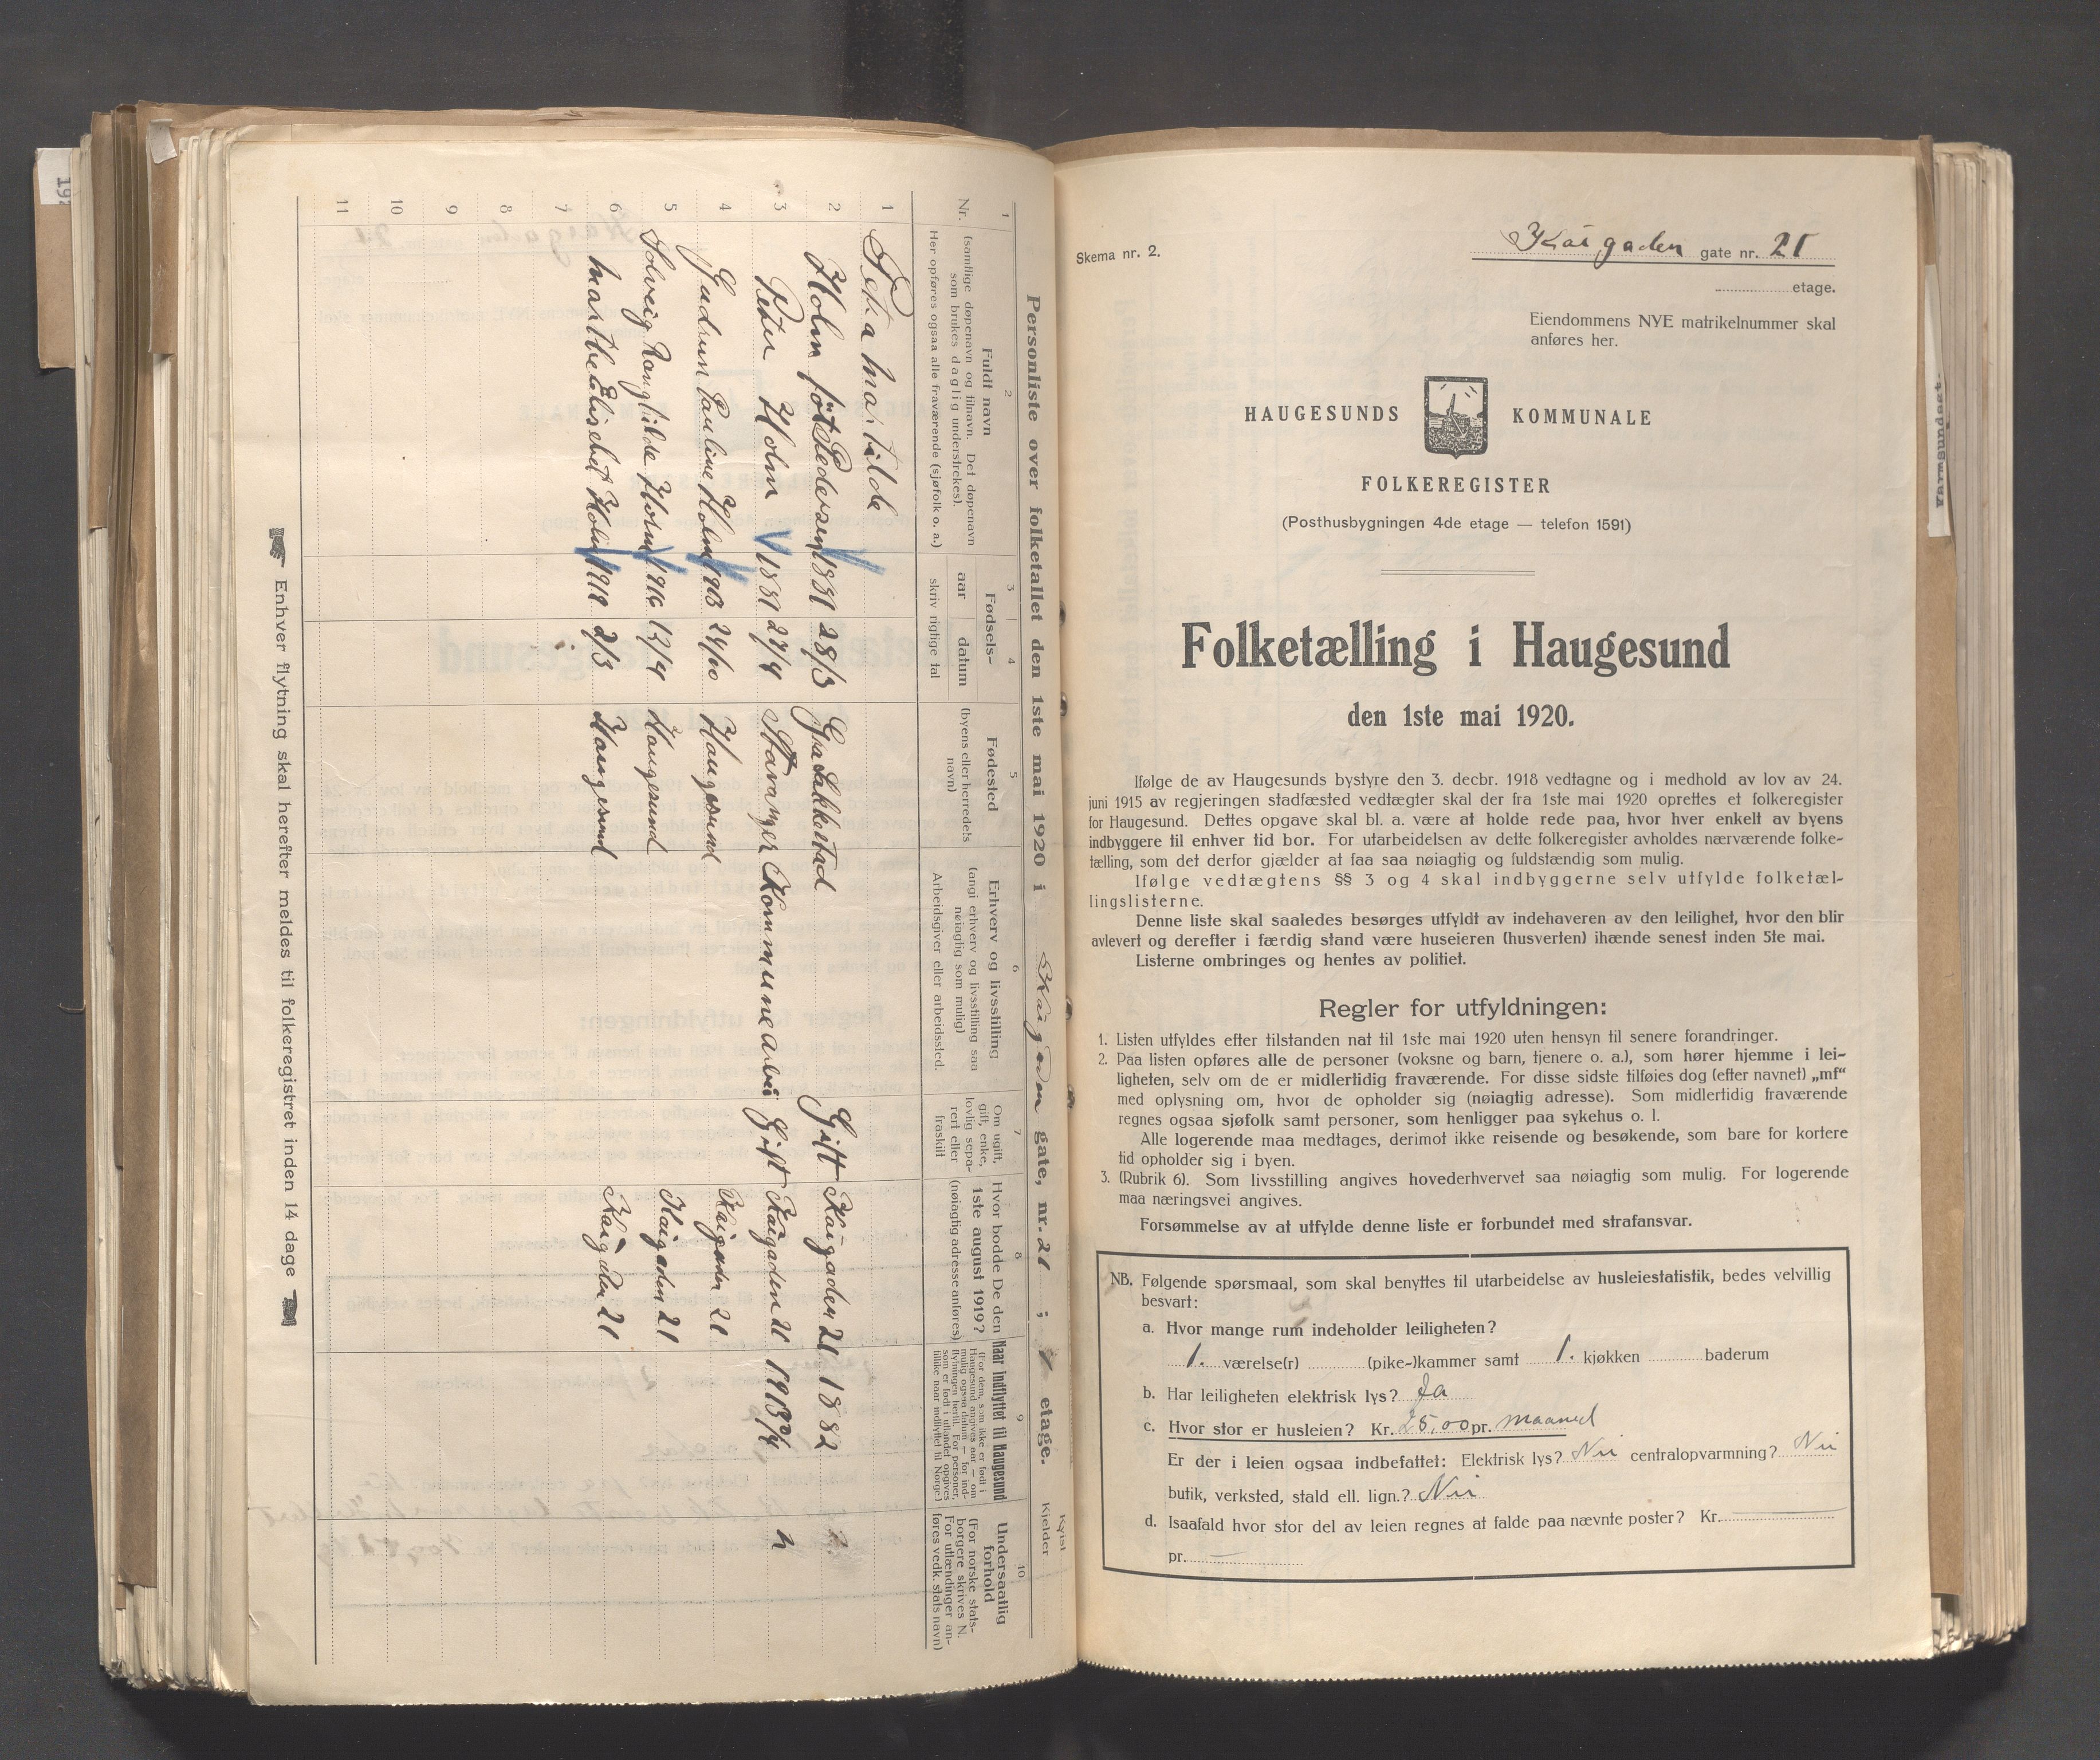 Personliste over folketallet den 1ste mai 1920 i Kaigaden gate, nr. 21 ; etage.
Kvist
Kjelder
1
2
3
4
5
6
7
8
9
10
Nr.
Fuldt navn
(samtlige døpenavn og tilnavn. Det døpenavn
som brukes daglig understrekes).
Her opføres ogsaa alle fraværende (sjøfolk o. a.)
Fødsels-
aar datum
skriv rigtige tal
Fødested
(byens eller herredets
navn)
Erhverv og livsstilling
(angi erhverv og livsstilling saa
nøiagtig som mulig)
Arbeidsgiver eller arbeidssted.
Om ugift,
gift, enke,
lovlig sepa-
rert eller
fraskilt
Hvor bodde De den
1ste august 1919?
(nøiagtig adresse anføres)
Naar indflyttet til Haugesund
(For dem, som ikke er født i
Haugesund angives aar — om
mulig ogsaa datum — for ind-
flytningen hertil. For personer,
som er født i utlandet opgives
tillike naar indflyttet til Norge.)
Undersaatlig
forhold
(For norske stats-
borgere skrives N.
For utlændinger an-
føres vedk. stats navn)
1 Petra Martilde
2 Holm født Pedersen 1881 28/3 Gra Lakkestad Gift Kaigaden 21 1882
3 Peter Holm 1881 27/4 Stavanger Kommunearbei Gift Kaigaden 21 1913 /4 n
4 Gudrun Pauline Holm 1908 24/10 Haugesund Kaigaden 21
5 Solveig Ranghilde Holm 1916 12/4 Haugesund Kaigaden 21
6 Marthe Elisebet Holm 1919 2/3 Haugesund Kaigaden 21
7
8
9
10
11
Enhver flytning skal herefter meldes til folkeregistret inden 14 dage
Skema nr. 2.
Kaigaden gate nr. 21
etage.
Eiendommens NYE matrikelnummer skal
anføres her.
HAUGESUNDS KOMMUNALE
FOLKEREGISTER
(Posthusbygningen 4de etage — telefon 1591)
Folketælling i Haugesund
den 1ste mai 1920.
Ifølge de av Haugesunds bystyre den 3. decbr. 1918 vedtagne og i medhold av lov av 24.
juni 1915 av regjeringen stadfæsted vedtægter skal der fra 1ste mai 1920 oprettes et folkeregister
for Haugesund. Dettes opgave skal bl. a. være at holde rede paa, hvor hver enkelt av byens
indbyggere til enhver tid bor. For utarbeidelsen av dette folkeregister avholdes nærværende folke-
tælling, som det derfor gjælder at faa saa nøiagtig og fuldstændig som mulig.
Ifølge vedtægtens §§ 3 og 4 skal indbyggerne selv utfylde folketæl-
lingslisterne.
Denne liste skal saaledes besørges utfyldt av indehaveren av den leilighet, hvor den blir
avlevert og derefter i færdig stand være huseieren (husverten) ihænde senest inden 5te mai.
Listerne ombringes og hentes av politiet.
Regler for utfyldningen:
1. Listen utfyldes efter tilstanden nat til 1ste mai 1920 uten hensyn til senere forandringer.
2. Paa listen opføres alle de personer (voksne og barn, tjenere o. a.), som hører hjemme i lei-
ligheten, selv om de er midlertidig fraværende. For disse sidste tilføies dog (efter navnet) „mf“
med oplysning om, hvor de opholder sig (nøiagtig adresse). Som midlertidig fraværende
regnes ogsaa sjøfolk samt personer, som henligger paa sykehus o. l.
Alle logerende maa medtages, derimot ikke reisende og besøkende, som bare for kortere
tid opholder sig i byen.
3. (Rubrik 6). Som livsstilling angives hovederhvervet saa nøiagtig som mulig. For logerende
maa næringsvei angives.
Forsømmelse av at utfylde denne liste er forbundet med strafansvar.
NB. Følgende spørsmaal, som skal benyttes til utarbeidelse av husleiestatistik, bedes velvillig
besvart:
a. Hvor mange rum indeholder leiligheten?
1. værelse(r) (pike-)kammer samt 1. kjøkken baderum
b. Har leiligheten elektrisk lys? Ja
c. Hvor stor er husleien? Kr. 25,00 pr. maaned
Er der i leien ogsaa indbefattet: Elektrisk lys? Nei centralopvarmning? Nei
butik, verksted, stald ell. lign.? Nei
d. Isaafald hvor stor del av leien regnes at falde paa nævnte poster? Kr.
pr.
Karmsundsgt.